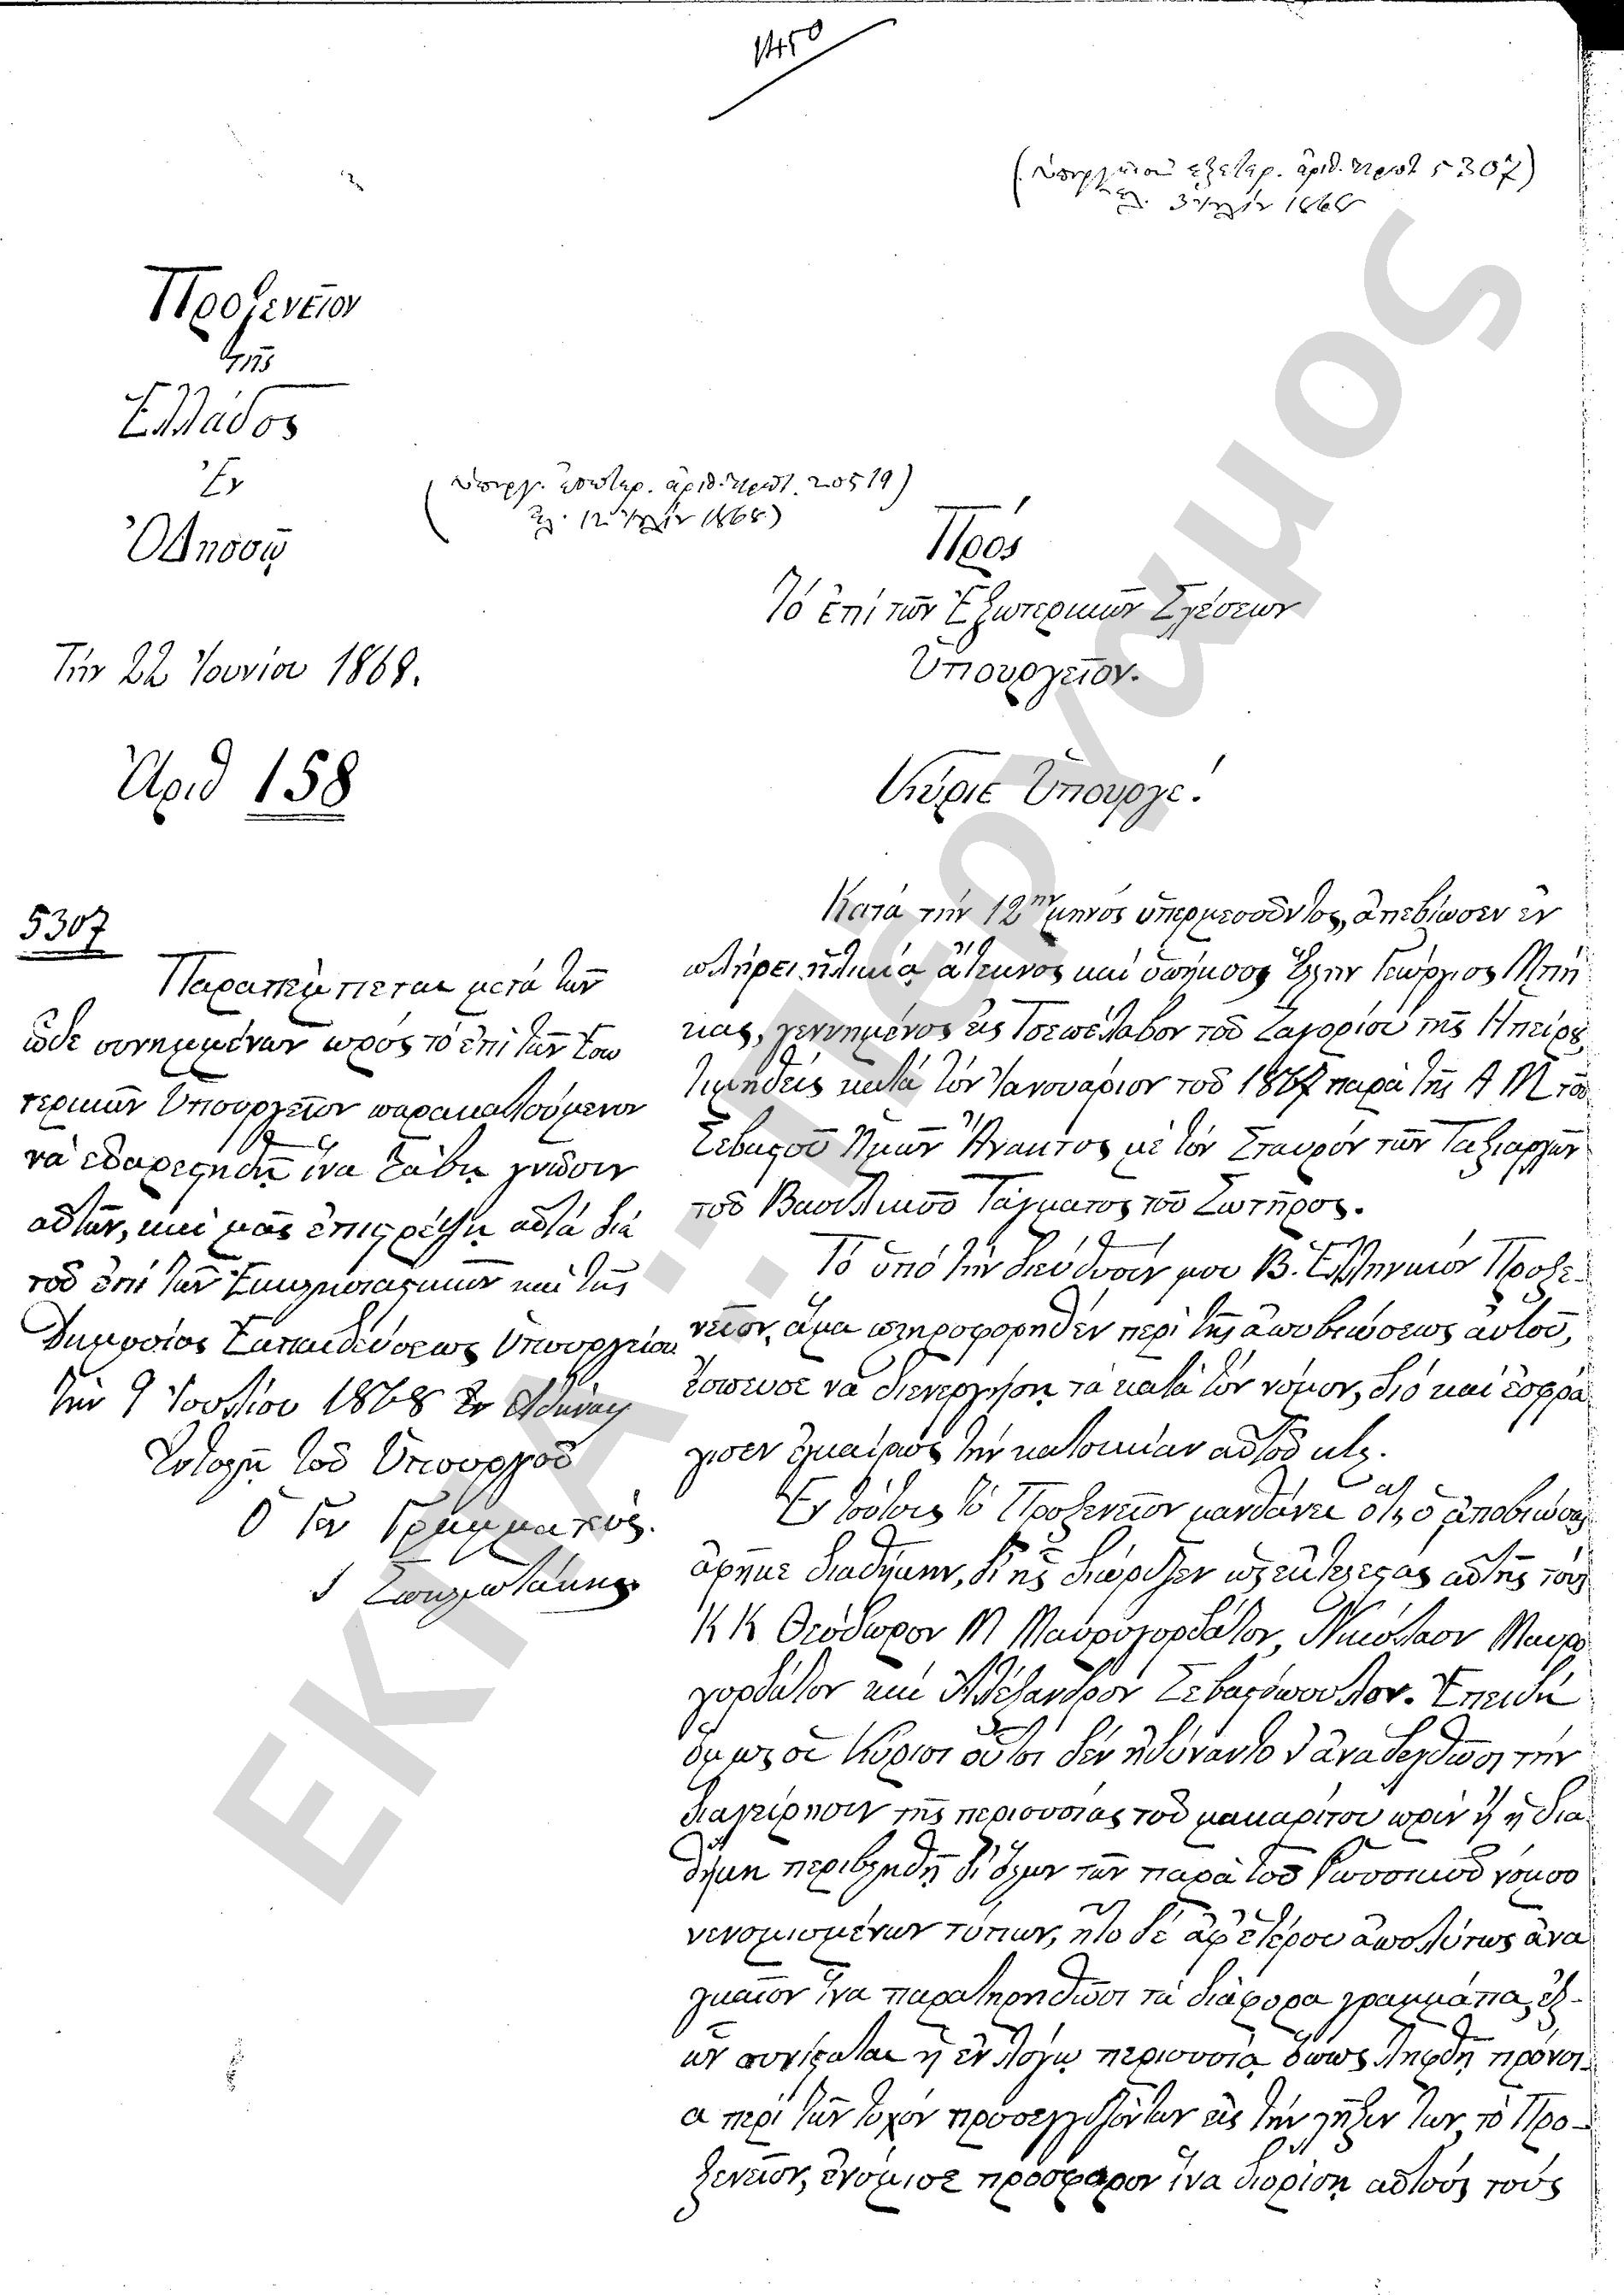 1450
(ὑπουργεῖον ἐξωτερ. ἀριθ. πρωτ 5307)
ἐλ. 3 Ἰουλίου 1868
Προξενεῖον
τῆς
Ἑλλάδος
Ἐν
Ὀδησσῷ
(ὑπουργ. ἐσωτερ. ἀριθ. πρωτ. 20519)
ἐλ. 12 Ἰουλίου 1868)
Πρός
Τό ἐπί τῶν Ἐξωτερικῶν Σχέσεων
Ὑπουργεῖον.
Τήν 22 Ἰουνίου 1868.
Ἀριθ 158
Κύριε Ὑπουργέ!
5307
Παραπέμπεται μετά τῶν
ὧδε συνημμένων πρός τό ἐπί τῶν Ἐσω
τερικῶν Ὑπουργεῖον παρακαλούμενον
νά εὐαρεστηθῇ ἵνα λάβῃ γνῶσιν
αὐτῶν, καί μᾶς ἐπιστρέψῃ αὐτά διά
τοῦ ἐπί τῶν Ἐκκλησιαστικῶν καί τῆς
Δημοσίας Ἐκπαιδεύσεως Ὑπουργείου
Τήν 9 Ἰουλίου 1868 Ἐν Ἀθήναις
Ἐντολῇ τοῦ Ὑπουργοῦ
Ὁ Γεν Γραμματεύς.
Κατά τήν 12ην μηνός ὑπερμεσοῦντος, ἀπεβίωσεν ἐν
πλήρει ἡλικίᾳ ἄτεκνος καί ὑπήκοος Ἕλλην Γεώργιος Μπή
κας, γεννημένος εἰς Τσεπέλοβον τοῦ Ζαγορίου τῆς Ἠπείρου,
τιμηθείς κατά τόν Ἰανουάριον τοῦ 1867 παρά τῆς Α Μ τοῦ
Σεβαστοῦ Ἡμῶν Ἄνακτος μέ τόν Σταυρόν τῶν Ταξιαρχῶν
τοῦ Βασιλικοῦ Τάγματος τοῦ Σωτῆρος.
Τό ὑπό τήν διεύθυνσίν μου Β. Ἑλληνικόν Προξε-
νεῖον, ἅμα πληροφορηθέν περί τῆς ἀποβιώσεως αὐτοῦ,
ἔσπευσε νά διενεργήσῃ τά κατά τόν νόμον, διό καί ἐσφρά
γισεν ἐγκαίρως τήν κατοικίαν αὐτοῦ κτλ.
Ἐν τούτοις τό Προξενεῖον μανθάνει ὅτι, ὁ ἀποβιώσας
ἀφῆκε διαθήκην, δι' ἧς διώρισεν ὡς ἐκτελεστάς αὐτῆς τούς
Κ Κ Θεόδωρον Μ Μαυρογορδάτον, Νικόλαον Μαυρο
γορδάτον καί Ἀλέξανδρον Σεβαστόπουλον. Ἐπειδή
ὅμως οἱ Κύριοι οὗτοι δέν ἠδύναντο ν' ἀναδεχθῶσι τήν
διαχείρησιν τῆς περιουσίας τοῦ μακαρίτου πρίν ἤ ἡ δια
θήκη περιβληθῇ δι' ὅλων τῶν παρά τοῦ Ῥωσσικοῦ νόμου
νενομισμένων τύπων, ἦτο δέ ἀφ' ἑτέρου ἀπολύτως ἀνα
γκαῖον ἵνα παρατηρηθῶσι τά διάφορα γραμμάτια, ἐξ-
ὧν συνίσταται ἡ ἐν λόγῳ περιουσία, ὅπως ληφθῇ πρόνοι-
α περί τῶν τυχόν προσεγγιζόντων εἰς τήν λῆξίν των, τό Προ-
ξενεῖον, ἐνόμισε πρόσφορον ἵνα διορίσῃ αὐτούς τούς
ΕΚΠΑ: Πέργαμος